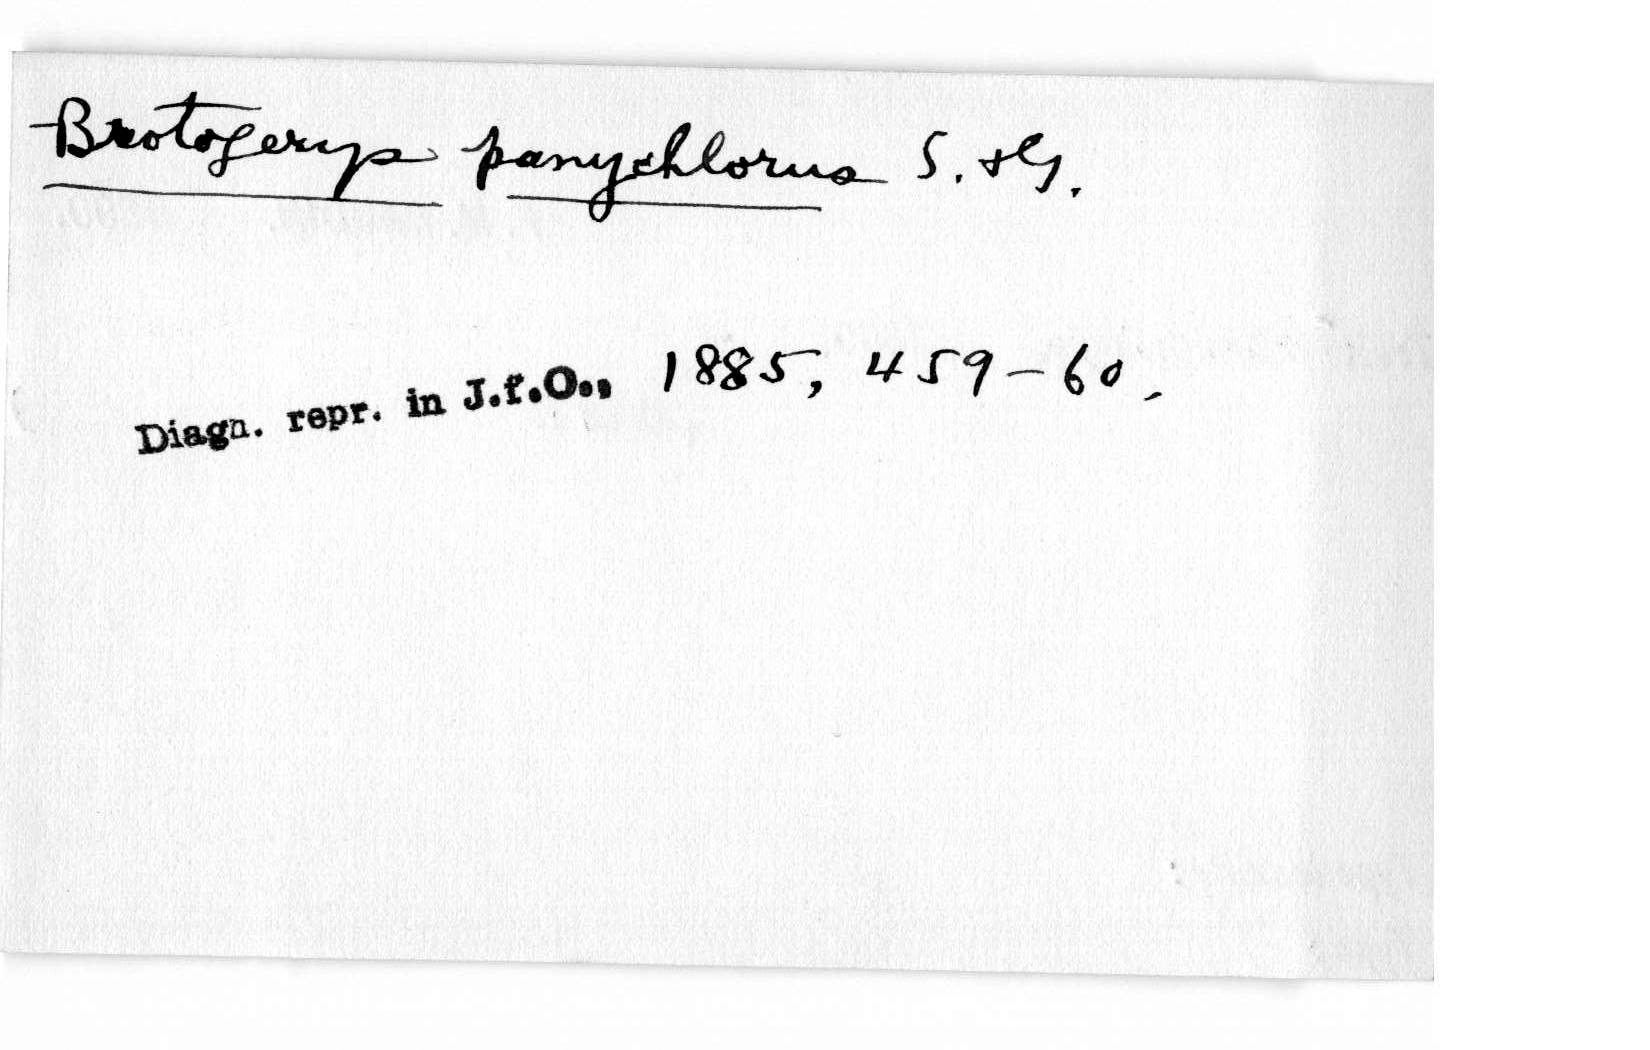 Brotogerys panychlorus S. & G.
Diagn. repr. in J.f.O., 1885, 459-60.